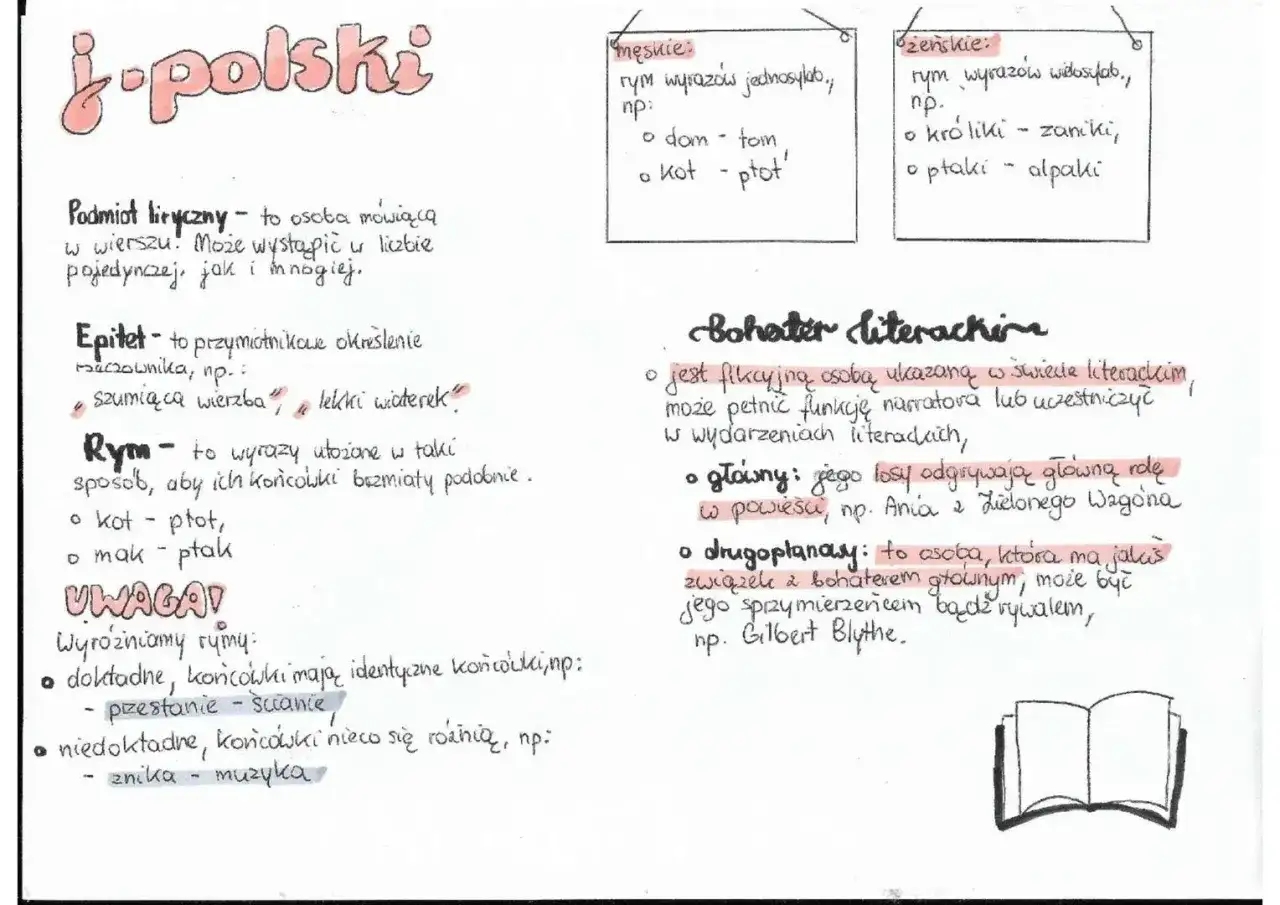 j. polski
Podmiot liryczny - to osoba mówiącą
w wierszu. Może wystąpić w liczbie
pojedynczej, jak i mnogiej.
Epitet - to przymiotnikowe określenie
rzeczownika, np. :
„szumiąca wierzba", „lekki wiaterek".
Rym - to wyrazy ułożone w taki
sposób, aby ich końcówki brzmiały podobnie.
o kot - płot,
o mak - ptak
UWAGA!
Wyróżniamy rymy:
• dokładne, końcówki mają identyczne końcówki, np:
- przestanie - ścianie,
• niedokładne, końcówki nieco się różnią, np:
- znika - muzyka
męskie:
rym wyrazów jednosylab.,
np:
o dom - tom,
o kot - płot
żeńskie:
rym wyrazów wielosylab.,
np.
o króliki - zaniki,
o ptaki - alpaki
Bohater literacki
o jest fikcyjną osobą ukazaną w świecie literackim,
może pełnić funkcję narratora lub uczestniczyć
w wydarzeniach literackich,
o główny: jego losy odgrywają główną rolę
w powieści, np. Ania z Zielonego Wzgórza
o drugoplanowy: to osoba, która ma jakiś
związek z bohaterem głównym, może być
jego sprzymierzeńcem bądź rywalem,
np. Gilbert Blythe.